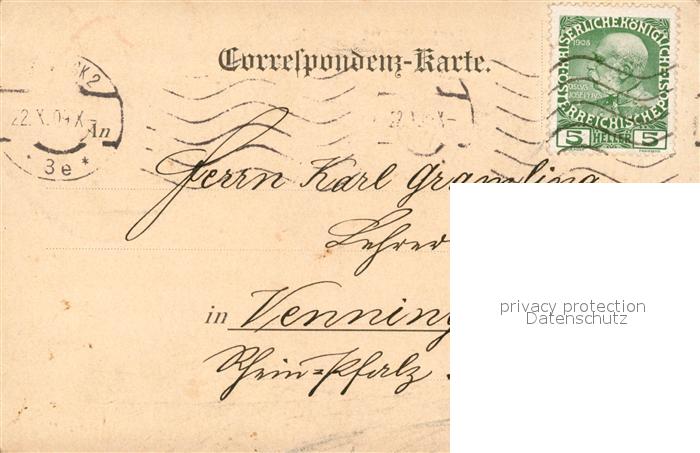 Correspondenz-Karte.
K.K.ÖSTERREICHISCHE POST KAISERLICHE KÖNIGLICHE
1908
5 HELLER 5
22.X.09-X-
3e *
An
Herrn Karl Gramling
Lehrer
in Venning
Rhein=Pfalz
privacy protection
Datenschutz